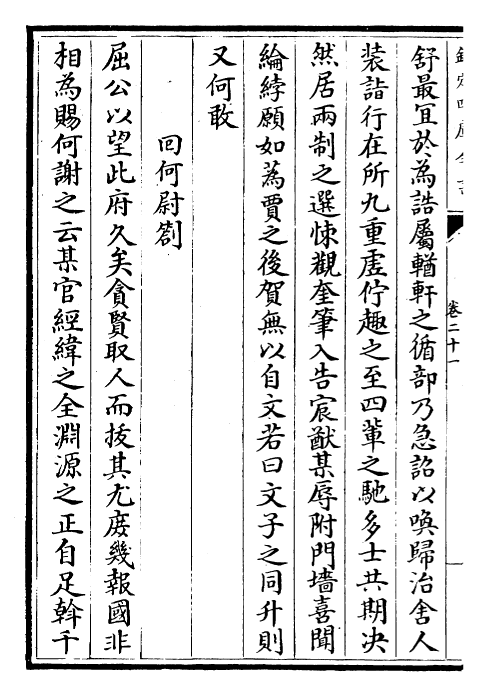 欽定四庫全書
卷二十一
舒最宜於為誥屬輶軒之循部乃急詔以喚歸治舍人
装詣行在所九重虛佇趣之至四輩之馳多士共期决
然居兩制之選悚觀奎筆入告宸猷某辱附門墻喜聞
綸綍願如蒍賈之後賀無以自文若曰文子之同升則
又何敢
回何尉劄
屈公以望此府久矣貪賢取人而拔其尤庻幾報國非
相為賜何謝之云某官經緯之全淵源之正自足斡千